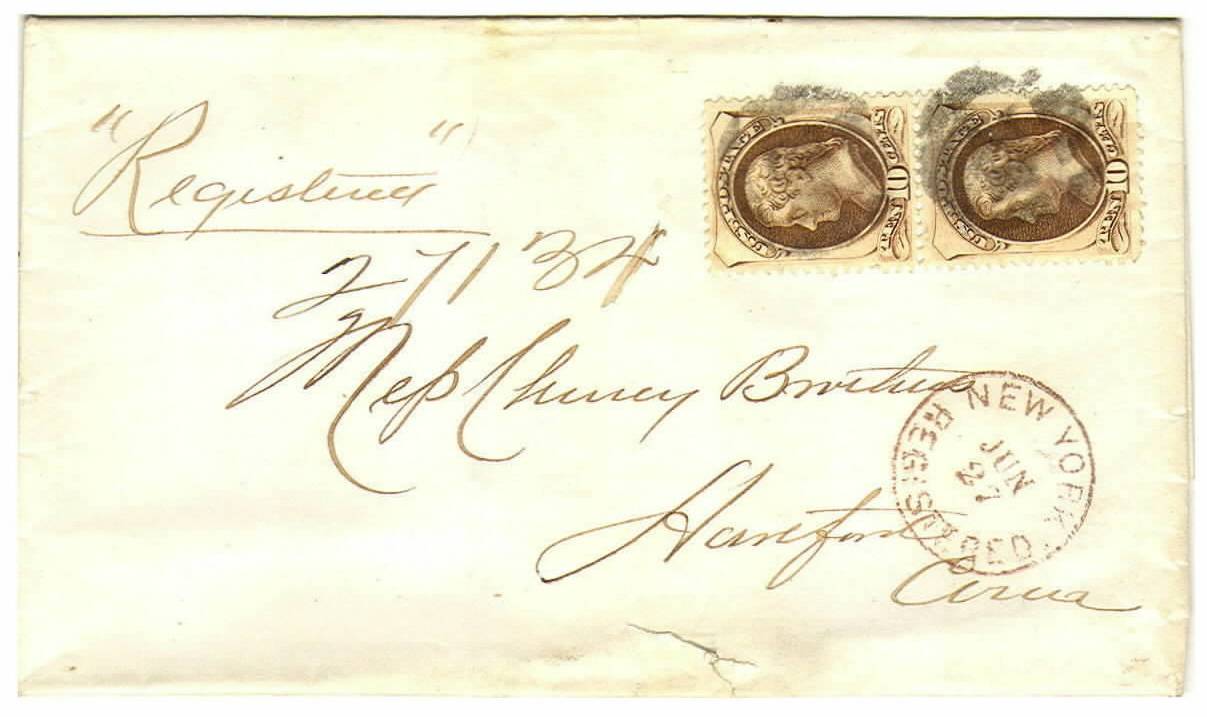 "Registered"
27134
Mess Cheney Brothers
Hartford
Conn
U.S. POSTAGE
TEN 10 CENTS
U.S. POSTAGE
TEN 10 CENTS
NEW YORK
JUN
27
REGISTERED